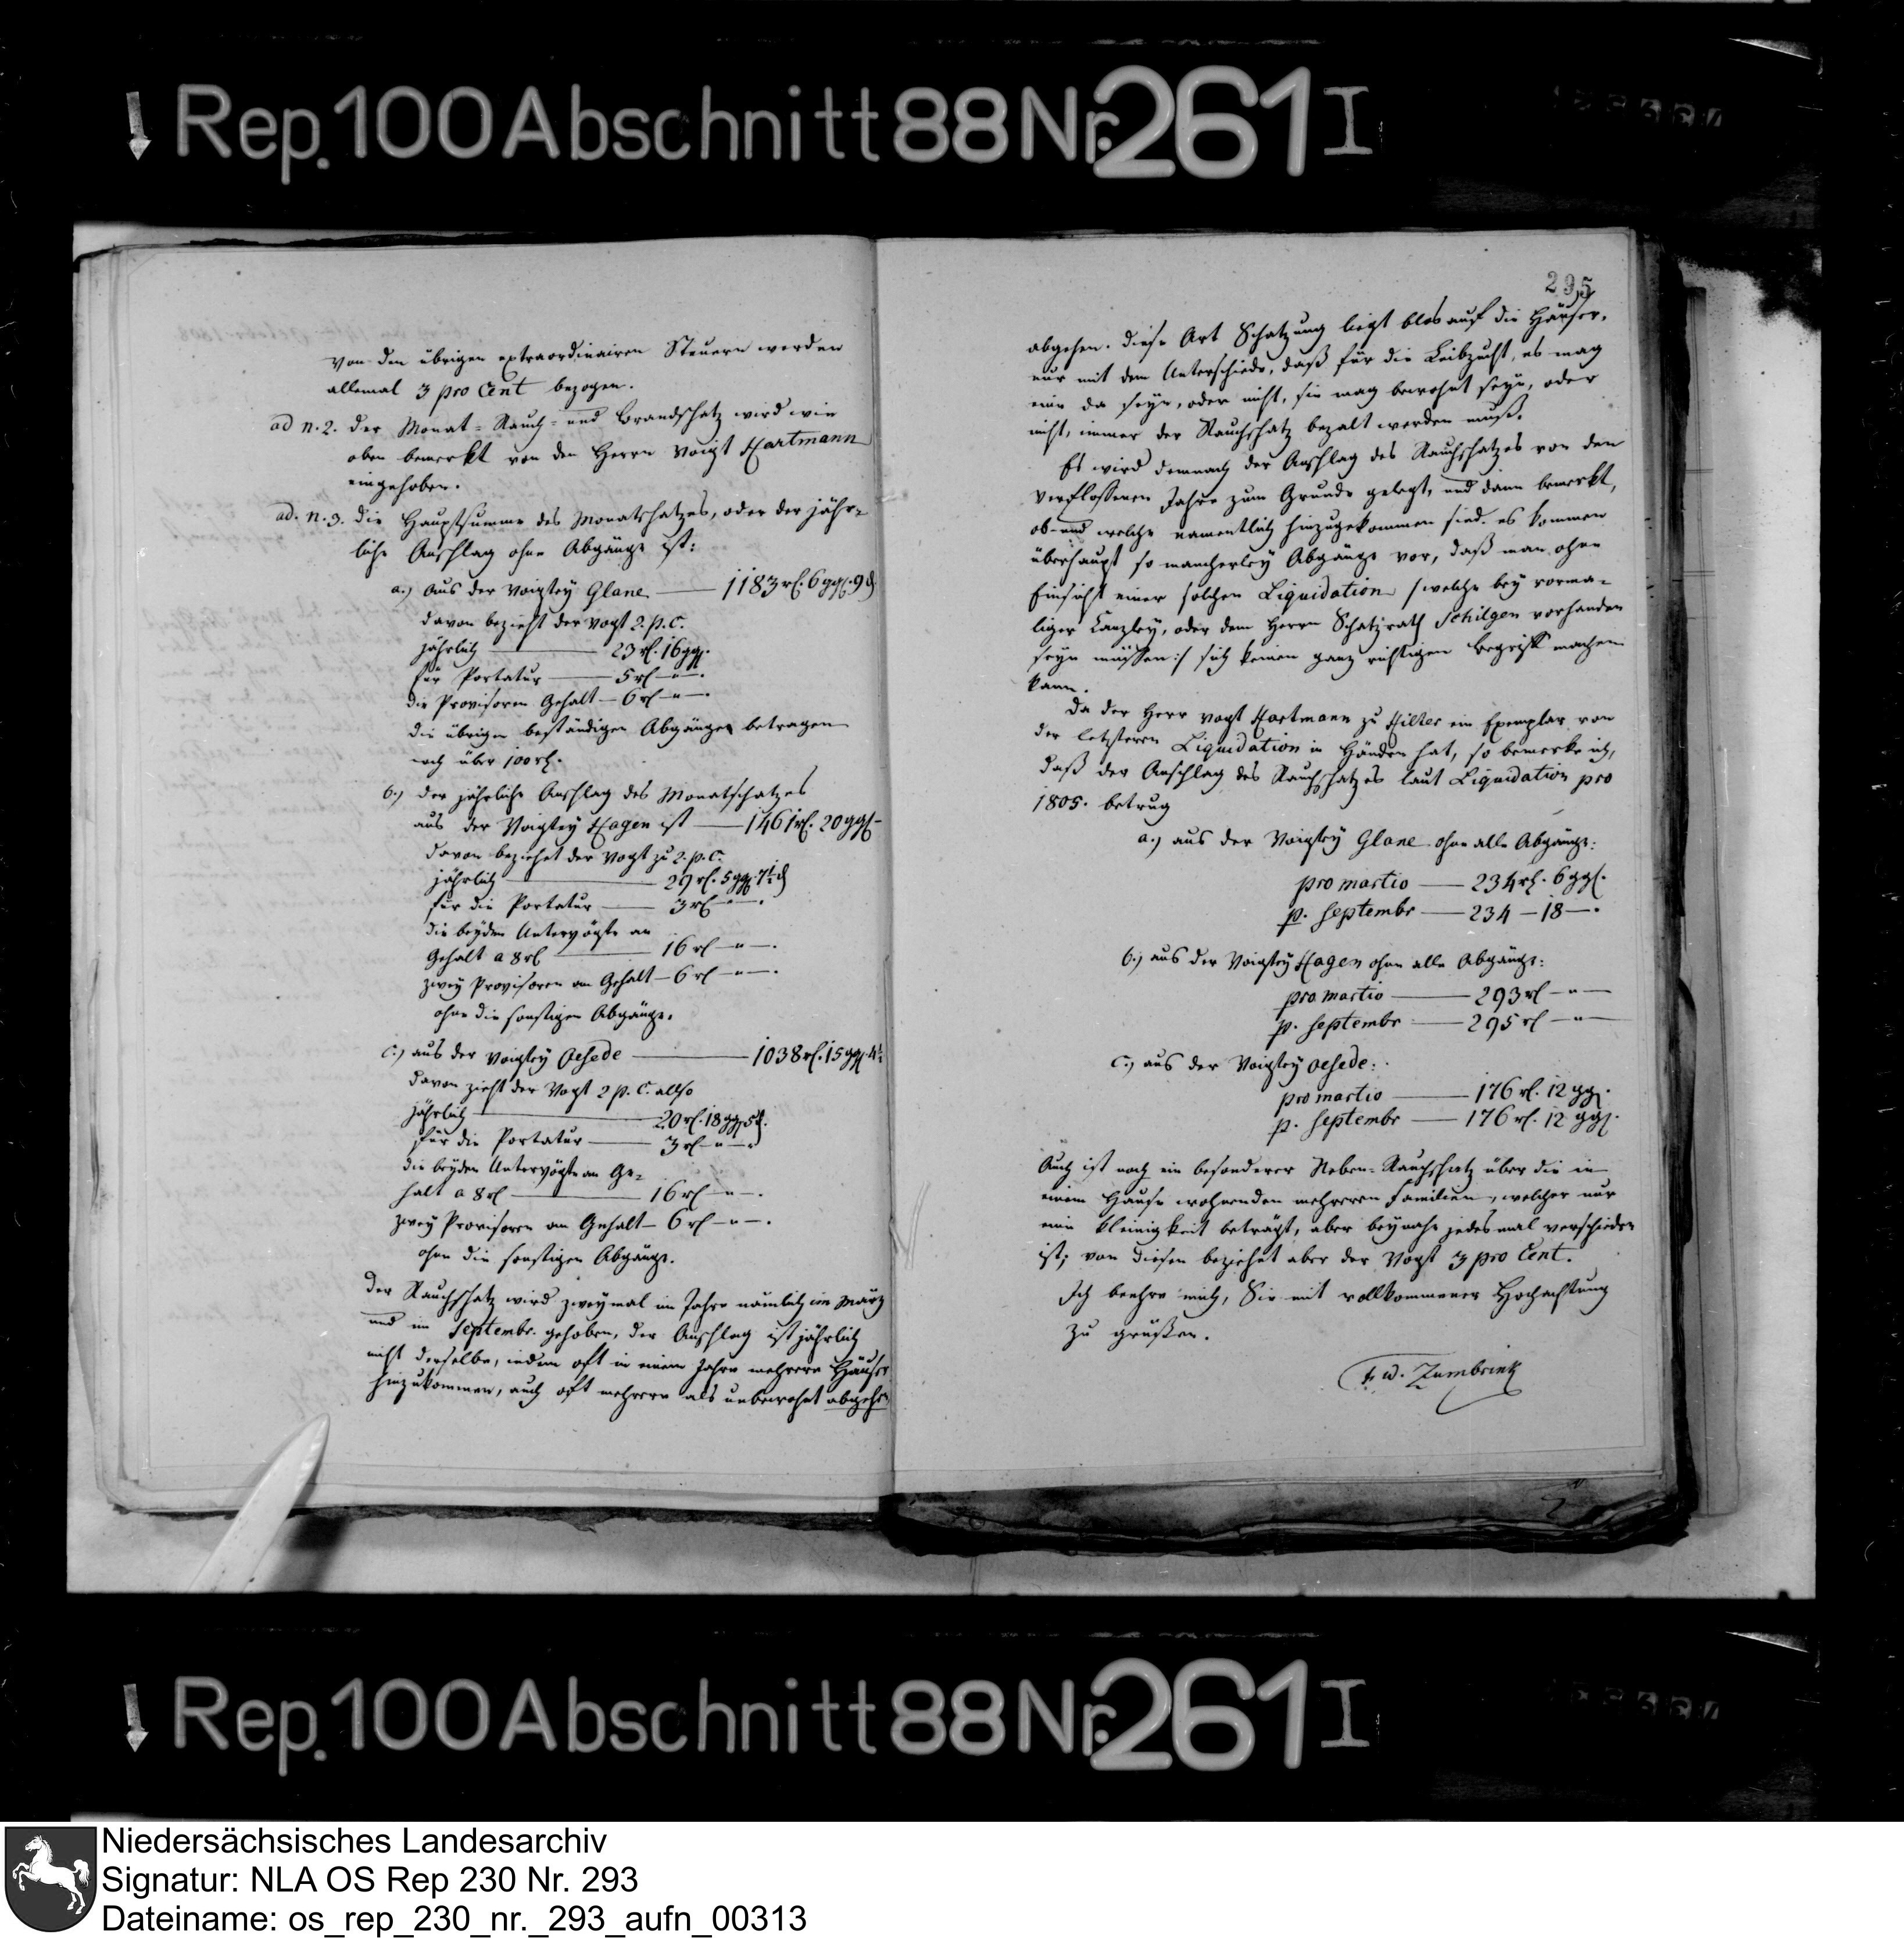 Rep. 100 Abschnitt 88 Nr. 261 I
Von den übrigen extraordinairen Steuern werden
allemal 3 pro Cent bezogen.
ad n. 2. der Monat- Rauch- und Brandschatz wird wie
oben bemerkt von den Herrn Voigt Hartmann
eingehoben.
ad. n. 3. die Hauptsumme des Monatschatzes, oder der jähr-
liche Anschlag ohne Abgänge ist:
a.) aus der Voigtey Glane — 1183 rl. 6 ggl. 9 d
davon bezieht der Vogt 2. p. C.
jährlich — 23 rl. 16 ggl.
für Portatur — 5 rl — " —.
die Provisoren Gehalt — 6 rl — " —.
die übrigen beständigen Abgänge betragen
noch über 100 rl.
b.) der jährliche Anschlag des Monatschatzes
aus der Voigtey Hagen ist — 1461 rl. 20 ggl —
davon beziehet der Vogt zu 2. p. C.
jährlich — 29 rl. 5 ggl. 7½ d
für die Portatur — 3 rl — " —.
die beyden Untervögte an
Gehalt a 8 rl — 16 rl — " —.
zwey Provisoren an Gehalt — 6 rl — " —.
ohne die sonstigen Abgänge.
c.) aus der Voigtey Oesede — 1038 rl. 15 ggl. 4½
davon zieht der Vogt 2 p. C. also
jährlich — 20 rl. 18 ggl. 5 d.
für die Portatur — 3 rl — " —.
die beyden Untervögte an Ge-
halt a 8 rl — 16 rl — " —.
zwey Provisoren an Gehalt — 6 rl — " —.
ohne die sonstigen Abgänge.
Der Rauchschatz wird zweymal im Jahre nämlich im März
und im Septembr. gehoben, der Anschlag ist jährlich
nicht derselbe, indem oft in einem Jahre mehrere Häuser
hinzukommen, auch oft mehrere als unbewohnt abgehn
295
abgehen. diese Art Schatzung liegt blos auf die Häuser,
nur mit dem Unterschiede, daß für die Leibzucht, es mag
eine da seyn, oder nicht, sie mag bewohnt seyn, oder
nicht, immer der Rauchschatz bezalt werden muß.
Es wird demnach der Anschlag des Rauchschatzes von den
verflossenen Jahre zum Grunde gelegt, und dann bemerkt,
ob- und welche namentlich hinzugekommen sind. es kommen
überhaupt so mancherley Abgänge vor, daß man ohne
Einsicht einer solchen Liquidation /: welche bey vorma-
liger Canzley, oder dem Herrn Schatzrath Schilgen vorhanden
seyn müssen :/ sich keinen ganz richtigen Begriff machen
kann.
Da der Herr Vogt Hartmann zu Hilter ein Exemplar von
der letzteren Liquidation in Händen hat, so bemerke ich,
daß der Anschlag des Rauchschatzes laut Liquidation pro
1805. betrug
a.) aus der Voigtey Glane ohne alle Abgänge:
pro martio — 234 rl. 6 ggl.
p. septembr — 234 — 18 —.
b.) aus der Voigtey Hagen ohne alle Abgänge:
pro martio — 293 rl — " —
p. septembr — 295 rl — " —
c.) aus der Voigtey Oesede:
pro martio — 176 rl. 12 ggl.
p. septembr — 176 rl. 12 ggl.
Auch ist noch ein besonderer Neben-Rauchschatz über die in
einem Hause wohnenden mehreren Familien, welcher nur
eine Kleinigkeit beträgt, aber beynahe jedesmal verschieden
ist; von diesen beziehet aber der Vogt 3 pro Cent.
Ich beehre mich, Sie mit vollkommener Hochachtung
zu grüßen.
F. W. Zumbrink
Rep. 100 Abschnitt 88 Nr. 261 I
Niedersächsisches Landesarchiv
Signatur: NLA OS Rep 230 Nr. 293
Dateiname: os_rep_230_nr._293_aufn_00313